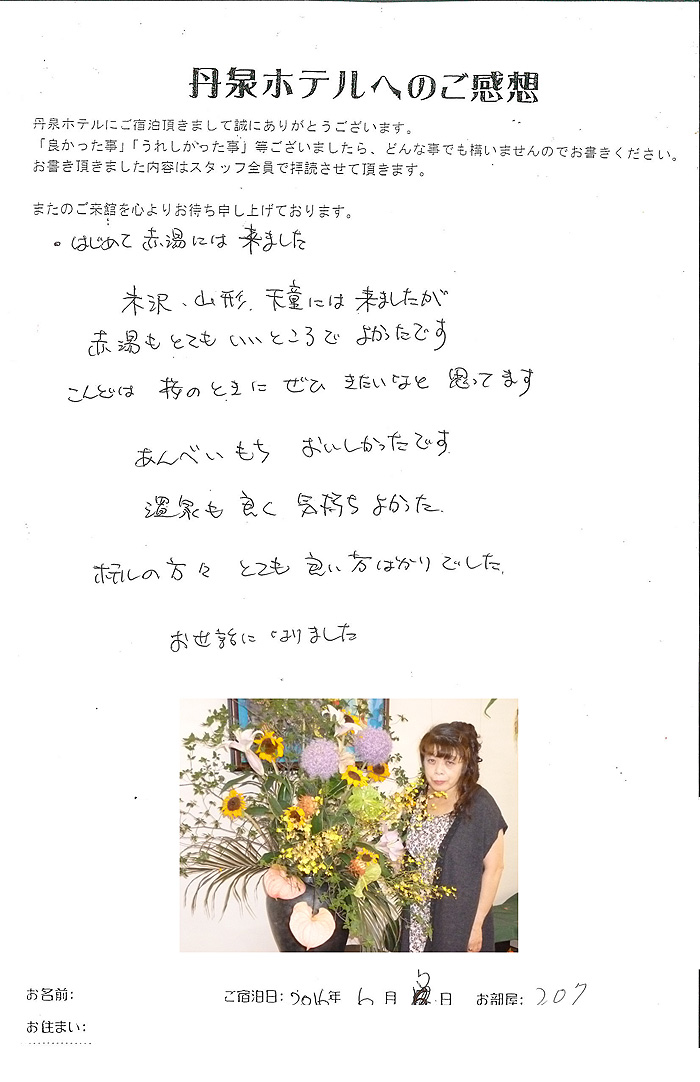 丹泉ホテルへのご感想
丹泉ホテルにご宿泊頂きまして誠にありがとうございます。
「良かった事」「うれしかった事」等ございましたら、どんな事でも構いませんのでお書きください。
お書き頂きました内容はスタッフ全員で拝読させて頂きます。
またのご来館を心よりお待ち申し上げております。
・はじめて 赤湯には 来ました
米沢、山形、天童には 来ましたが
赤湯も とても いいところで よかったです
こんどは 桜のときに ぜひ きたいなと 思ってます
あんべいもち おいしかったです
温泉も 良く 気持ち よかった.
ホテルの方々 とても 良い方ばかりでした.
お世話に なりました
お名前:
ご宿泊日: 2016年 6月 日 お部屋: 207
お住まい: